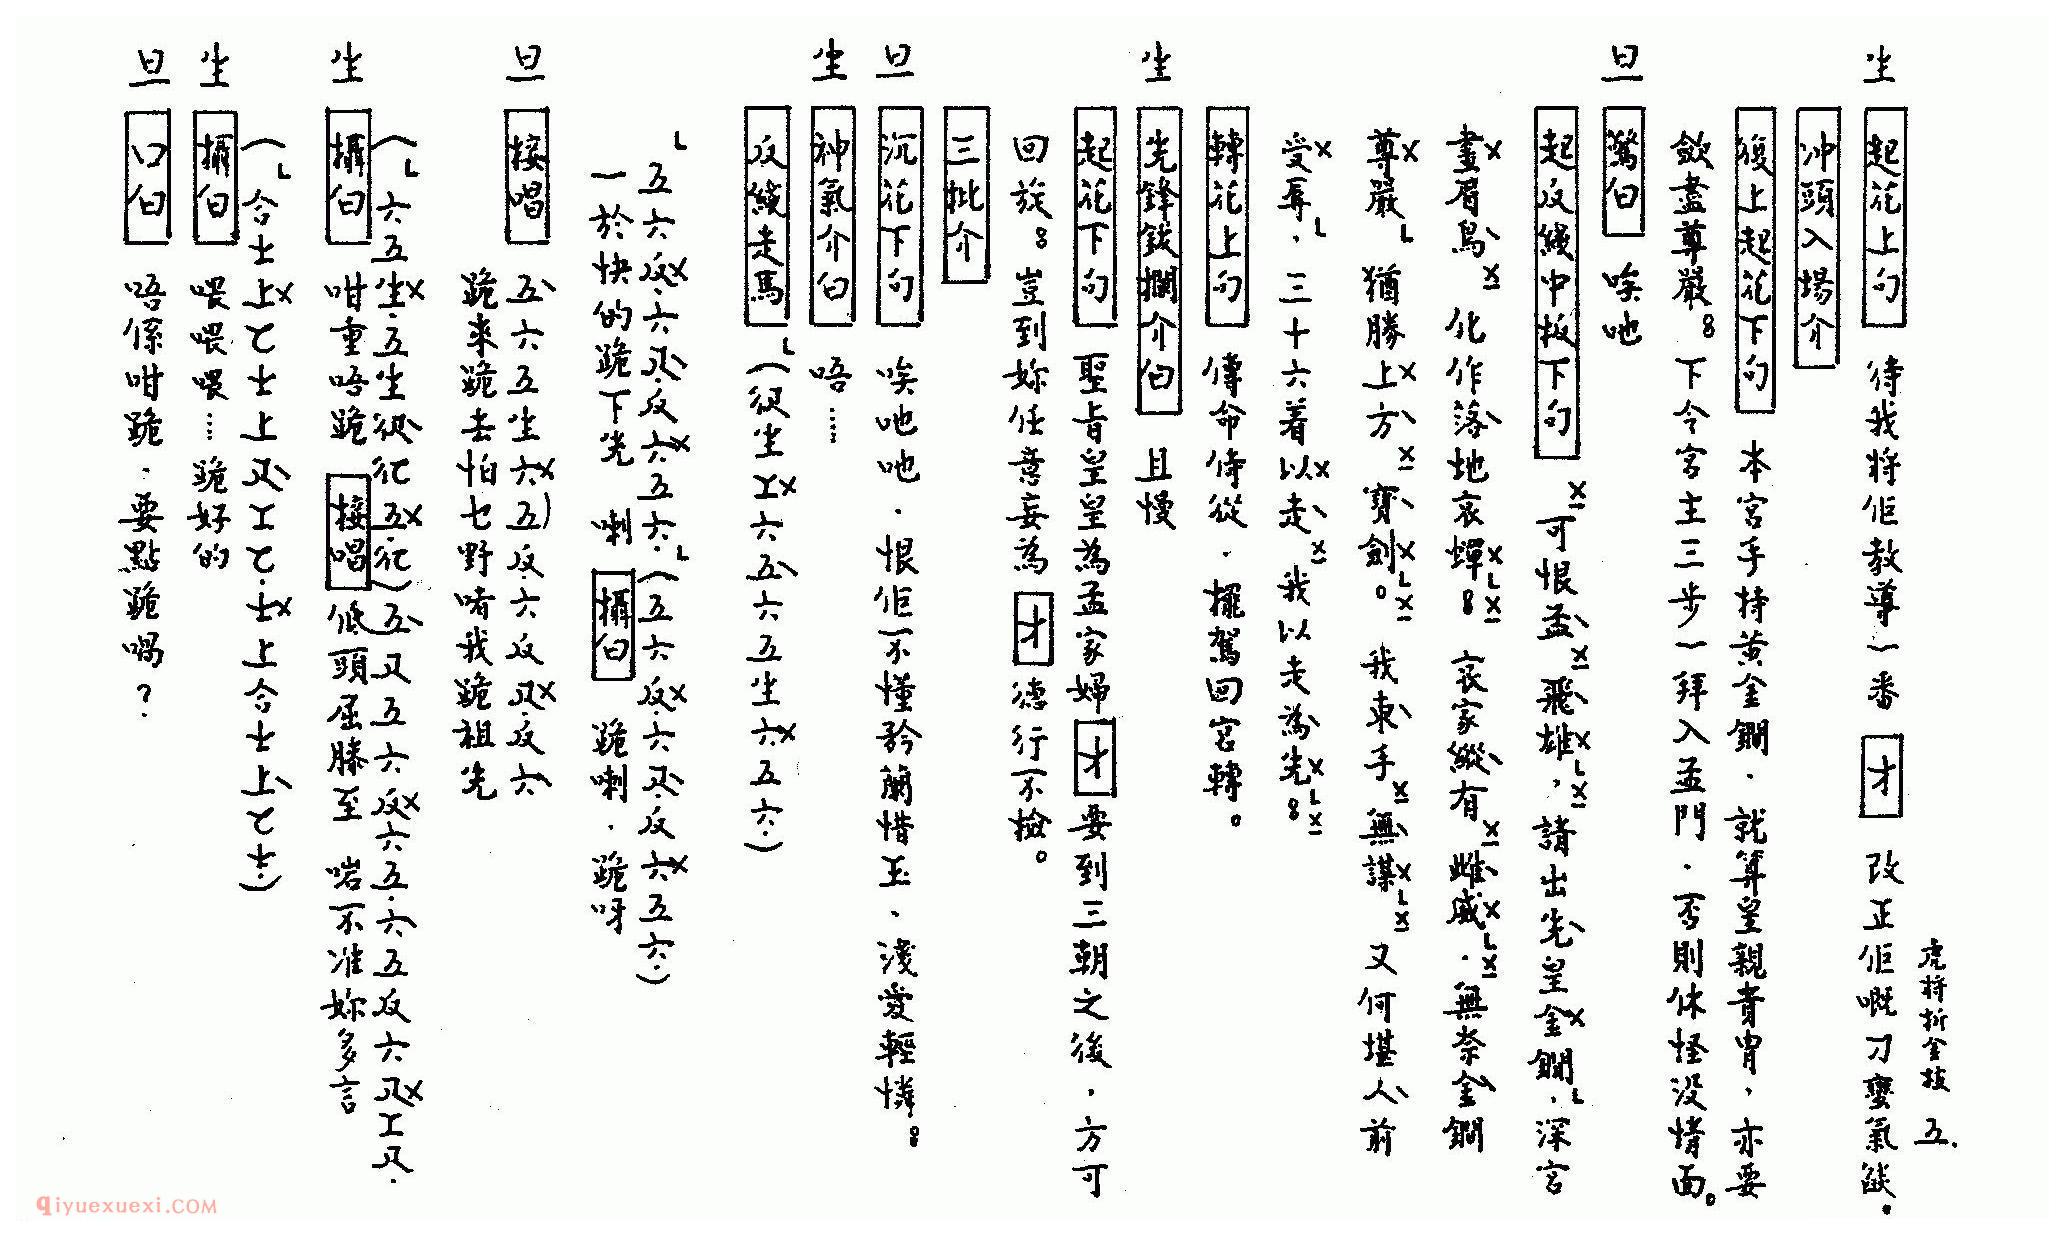 虎將折金枝 五.
生 起花上句 待我將佢教導一番 才 改正佢嘅刁蠻氣燄。
冲頭入場介
復上起花下句 本宮手持黃金鐧．就算皇親胄，亦要
歛盡尊嚴。下令宮主三步一拜入孟門．否則休怪没情面。
旦 驚白 唉吔
起反綫中板下句 可恨孟飛雄，請出先皇金鐧．深宮
畫眉鳥 化作落地哀蟬。哀家縱有雌威．無奈金鐧
尊嚴 猶勝上方 寶劍。我束手無謀 又何堪人前
受辱．三十六着以走 我以走為先。
轉花上句 傳命侍從．擺駕回宮轉。
生 先鋒鈸攔介白 且慢
起花下句 聖旨皇皇為孟家婦 才 要到三朝之後，方可
回旋。豈到妳任意妄為 才 德行不檢。
三批介
旦 沉花下句 唉吔吔．恨佢不懂矜蘭惜玉、淺愛輕憐。
生 神氣介白 唔……
反綫走馬 (伬生工六五六五生六五六.)
五六反.六尺.反六五六.(五六反.六尺反六五六.)
一於快的跪下先 喇 攝白 跪喇．跪呀
旦 接唱 五六五生六五)反.六反尺反六
跪來跪去怕乜野啫我跪祖先
(六五生.五生伬仩五.仩)五尺五六反六五.六五反六尺工尺.
生 攝白 咁重唔跪 接唱 低頭屈膝至 啱不准妳多言
(合士上乙士上尺工乙.士上合士上乙士.)
生 攝白 喂喂喂…跪好的
旦 口白 唔係咁跪．要點跪喎？